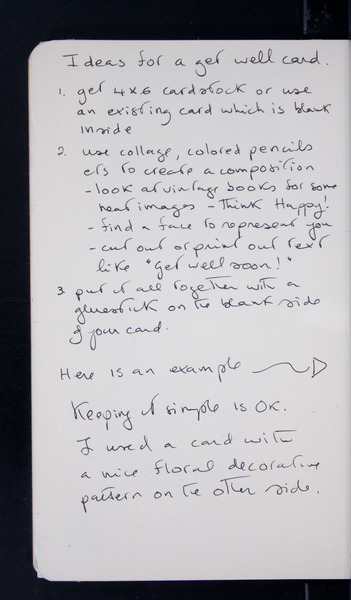 Ideas for a get well card.
1. get 4x6 cardstock or use
an existing card which is blank
inside
2. use collage, colored pencils
etc to create a composition
- look at vintage books for some
neat images - Think Happy!
- find a face to represent you
- cut out or print out text
like "Get well soon!"
3 put it all together with a
gluestick on the blank side
of your card.
Here is an example
Keeping it simple is OK.
I used a card with
a nice floral decorative
pattern on the other side.